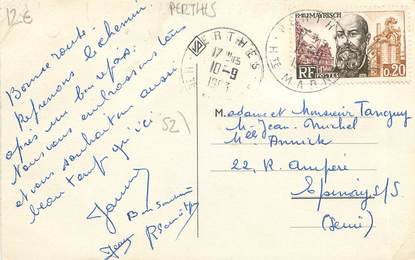 12€
PERTHES
PERTHES
17H45
10-9
1963
Hte MARNE
EMILE MAYRISCH
RF
0,20
52
Bonne route.
Reprenons le chemin
après un bon repos.
Nous vous embrassons tous
et vous souhaitons aussi
beau temps qu'ici
Bon Souvenir
Jean
Madame et Monsieur Tanguy
Mr Jean-Michel
Melle Annick
22, R. Ampère
Epinay s/s
(Seine)